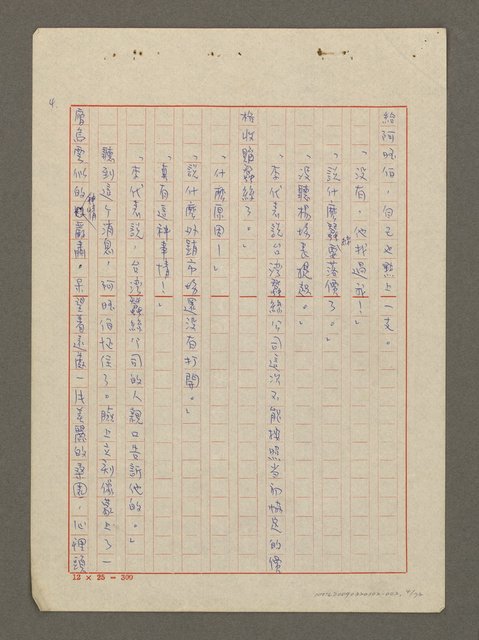 4.
給阿旺伯,自己也點上一支。
「沒有,他找過我!」
「說什麼蠶繭要落價了。」
「沒聽楊場長提起。」
「李代表說台灣蠶絲公司這次不能按照當初講定的價
格收購蠶絲了。」
「什麼原因!」
「說什麼外銷市場還沒有打開。」
「真有這種事情!」
「李代表說,台灣蠶絲公司的人親口告訴他的。」
聽到這个消息,阿旺伯怔住了。臉上立刻像蒙上了一
層烏雲似的神情嚴肅。呆望着遠處一片美麗的桑園,心裡頭
12 × 25 = 300